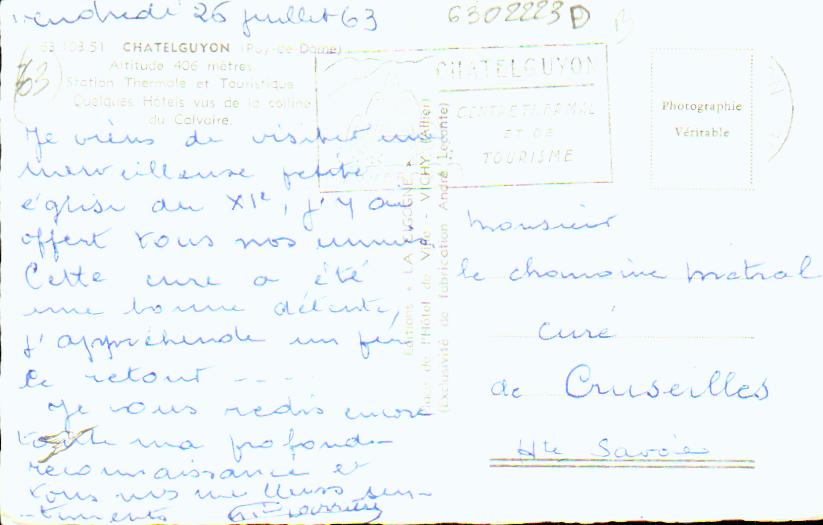 vendredi 26 juillet 63
6302223D
63
63 103.51 CHATELGUYON (Puy-de-Dôme)
Altitude 406 mètres
Station Thermale et Touristique
Quelques Hôtels vus de la colline
du Calvaire.
Je viens de visiter une
merveilleuse petite
église du XIe, j'y ai
offert tous nos
Cette cure a été
une bonne détente,
j'appréhende un peu
le retour ---
Je vous redis encore
toute ma profonde
reconnaissance et
tous mes meilleurs sen-
-timents
CHATELGUYON
CENTRE THERMAL
ET DE
TOURISME
Editions « LA CIGOGNE »
Place de l'Hôtel de Ville - VICHY (Allier)
(Exclusivité de fabrication André Leconte)
Photographie
Véritable
Monsieur
le chanoine Métral
curé
de Cruseilles
Hte Savoie